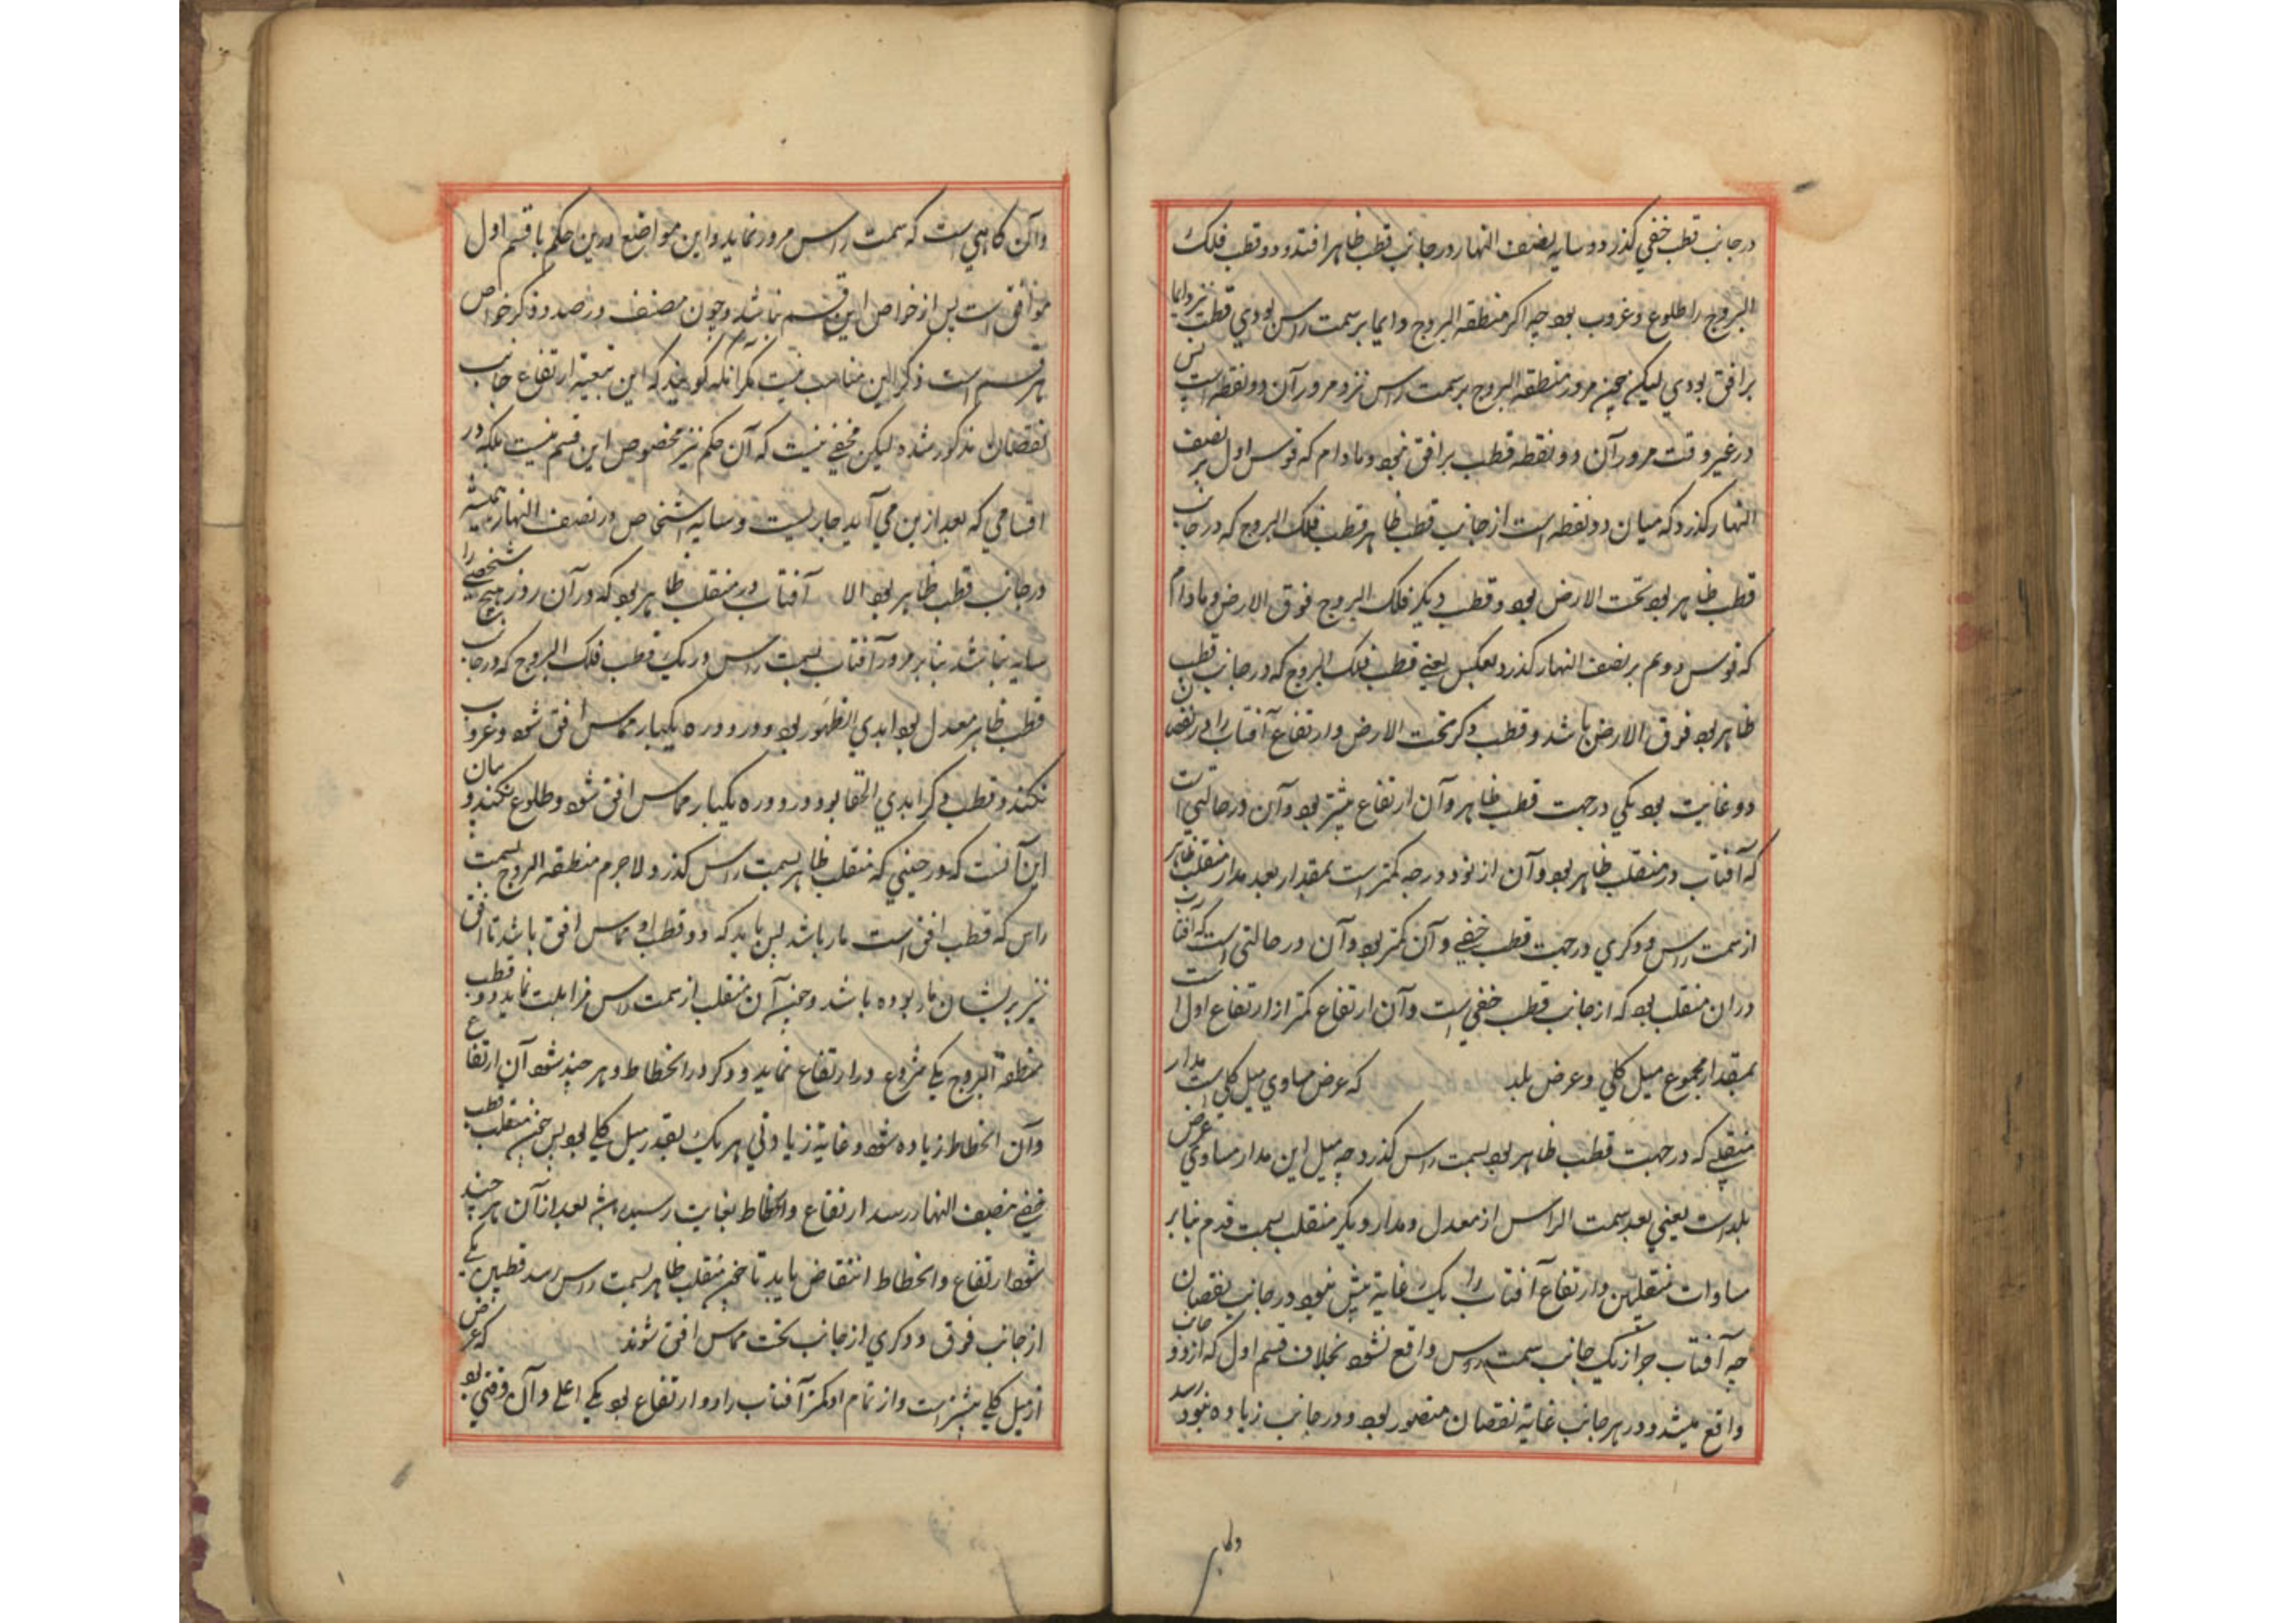 در جانب قطب خفی کذرد و سایه نصف النهار در جانب قطب ظاهر افتد و دو قطب فلک
البروج را طلوع و غروب بود چه اکر منطقه البروج دایما بر سمت راس بودی قطب نیز دایما
بر افق بودی لیکن حین مرور منطقه البروج بر سمت راس نزد مرور آن دو نقطه است پس
در غیر وقت مرور آن دو نقطه قطب بر افق نبود و مادام که قوس اول بر نصف
النهار کذرد که میان دو نقطه است از جانب قطب ظاهر قطب فلک البروج که در جانب
قطب ظاهر بود تحت الارض بود و قطب دیکر فلک البروج فوق الارض و مادام
که قوس دوم بر نصف النهار کذرد بعکس یعنی قطب فلک البروج که در جانب قطب
ظاهر بود فوق الارض باشد و قطب دکر تحت الارض و ارتفاع آفتاب را در نقصان
دو غایت بود یکی در جهت قطب ظاهر و آن ارتفاع بیشتر بود و آن در حالتی است
که آفتاب در منقلب ظاهر بود و آن از نود درجه کمتر است بمقدار بعد مدار منقلب ظاهر
از سمت راس و دکری در جهت قطب خفی و آن کمتر بود و آن در حالتی است که آفتاب
در ان منقلب بود که از جانب قطب خفی است و آن ارتفاع کمتر از ارتفاع اول است
بمقدار مجموع میل کلی و عرض بلد که عرض مساوی میل کلی است مدار
منقلبی که در جهت قطب ظاهر بود بسمت راس کذرد چه میل این مدار مساوی عرض
بلد است یعنی بعد سمت الراس از معدل و مدار دیکر منقلب بسمت قدم بنا بر
مساوات منقلبین و ارتفاع آفتاب را یک غایة بیش نبود در جانب نقصان
چه آفتاب جز از یک جانب سمت راس واقع نشود بخلاف قسم اول که از دو جانب
واقع میشد و در هر جانب غایة نقصان متصور بود و در جانب زیاده بنود رسد
و آن کاهی است که سمت راس مرور نماید و این مواضع درین حکم با قسم اول
موافق است پس از خواص این قسم نباشد و چون مصنف در صدد ذکر خواص
هر قسم است ذکر این مناسب نیست مکر آنکه کویند که این بتعیة ارتفاع جانب
نقصان مذکور شده لیکن مخفی نیست که آن حکم نیز مخصوص این قسم نیست بلکه در
اقسامی که بعد ازین می آید جاریست و سایه اشخاص در نصف النهار همیشه
در جانب قطب ظاهر بود الا آفتاب در منقلب ظاهر بود که در آن روز هیچ شخصی را
سایه نباشد بنا بر مرور آفتاب بسمت راس و یک قطب فلک البروج که در جانب
قطب ظاهر معدل بود ابدی الظهور بود و در دوره یکبار مماس افق شود و غروب
نکند و قطب دکر ابدی الخفا بود و در دوره یکبار مماس افق شود و طلوع نکند و بیان
این آنست که در حینی که منقلب ظاهر بسمت راس کذرد لاجرم منطقه البروج بسمت
راس که قطب افق است مار باشد پس باید که دو قطب او مماس افق باشد تا افق
نیز بر ایشان مار بوده باشد و چون آن منقلب از سمت راس مزایلت نماید دو قطب
منطقه البروج یکی شروع در ارتفاع نماید و دکر در انحطاط و هر چند شود آن ارتفاع
و آن انحطاط زیاده شود و غایة زیادتی هر یک بقدر میل کلی بود پس چون منقلب قطب
خفی بنصف النهار رسد ارتفاع و انحطاط بغایت رسیده باشد بعد از آن هر چند
شود ارتفاع و انحطاط انتقاض یابد تا چون منقلب ظاهر بسمت راس رسد قطبین یکی
از جانب فوق و دکری از جانب تحت مماس افق شوند که عرض
از میل کلی بیشتر است و از تمام او کمتر آفتاب را دو ارتفاع بود یکی اعلی و آن وقتی بود